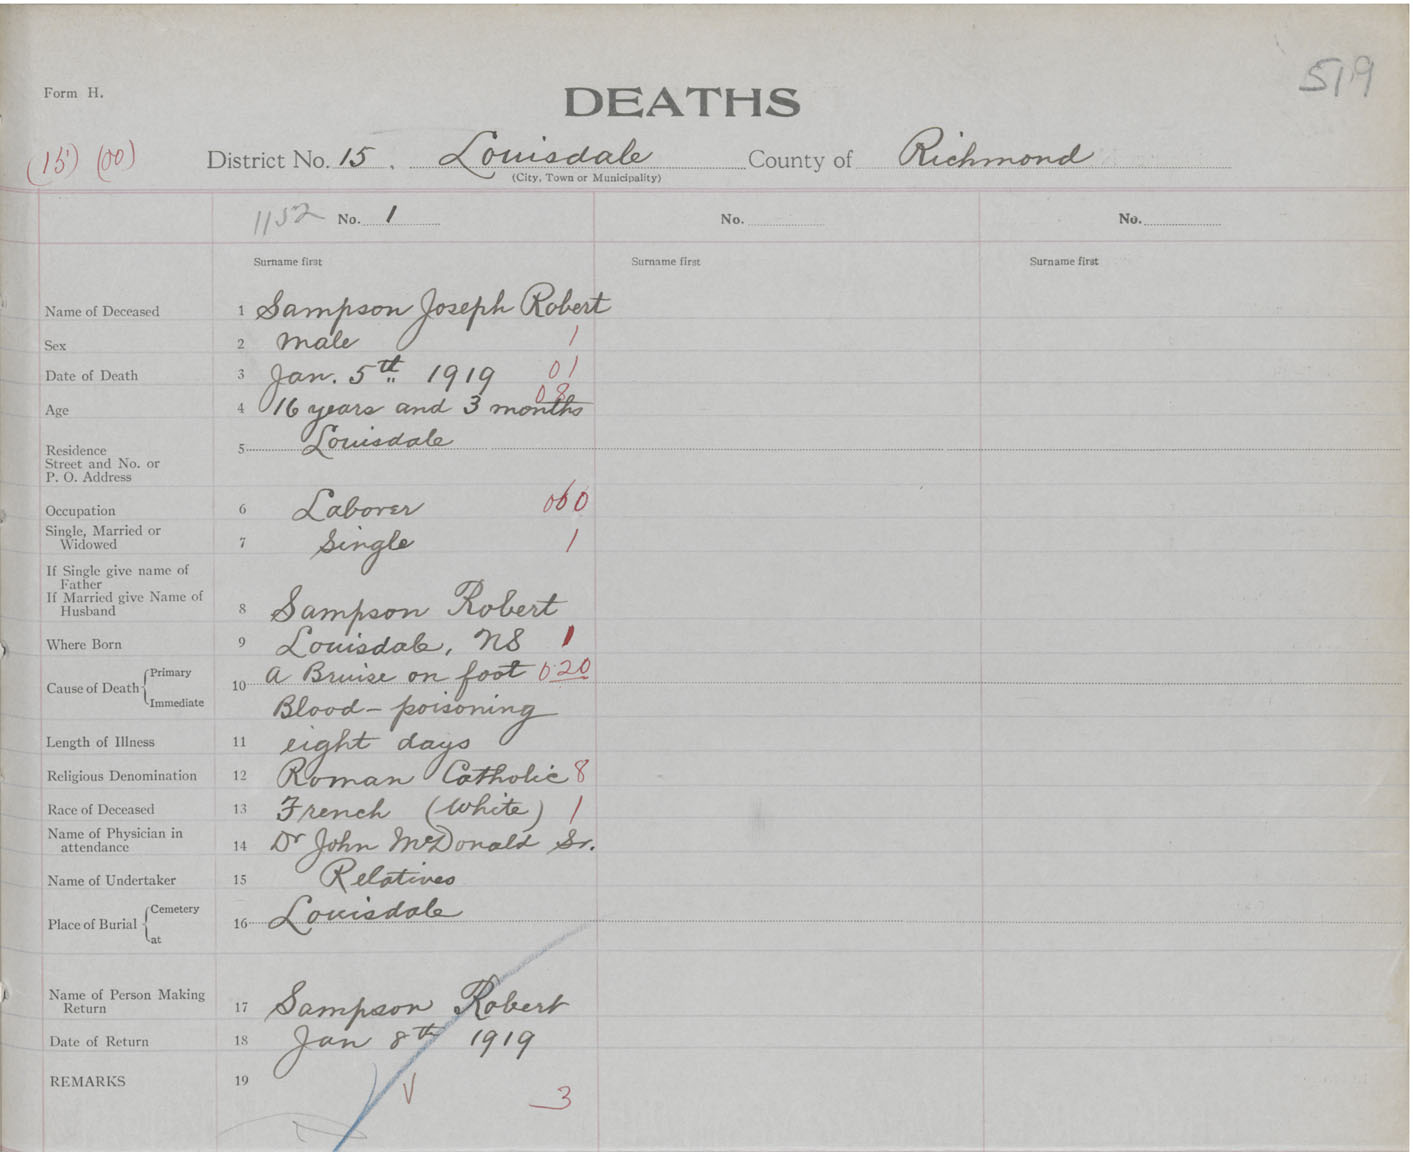 519
Form H.
DEATHS
(15) (00) District No. 15. Louisdale County of Richmond
(City, Town or Municipality)
1152 No. 1 No. No.
Surname first Surname first Surname first
Name of Deceased 1 Sampson Joseph Robert
Sex 2 Male 1
Date of Death 3 Jan. 5th 1919 01
08
Age 4 16 years and 3 months
Residence 5 Louisdale
Street and No. or
P. O. Address
Occupation 6 Laborer 060
Single, Married or
Widowed 7 Single 1
If Single give name of
Father
If Married give Name of
Husband 8 Sampson Robert
Where Born 9 Louisdale, NS 1
Cause of Death Primary 10 A Bruise on foot 020
Immediate Blood-poisoning
Length of Illness 11 eight days
Religious Denomination 12 Roman Catholic 8
Race of Deceased 13 French (White) 1
Name of Physician in
attendance 14 Dr John McDonald Sr.
Name of Undertaker 15 Relatives
Place of Burial Cemetery 16 Louisdale
at
Name of Person Making
Return 17 Sampson Robert
Date of Return 18 Jan 8th 1919
REMARKS 19
3